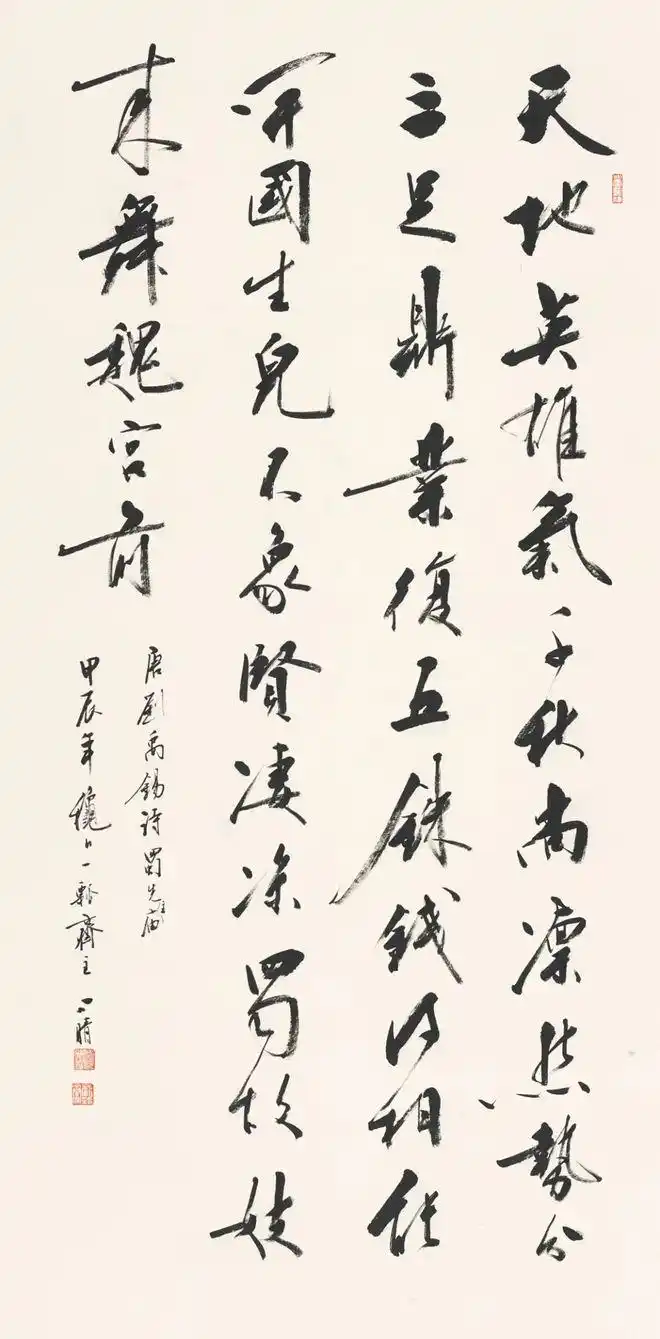 天地英雄氣千秋尚凛然勢分
三足鼎業復五銖錢得相能
開國生兒不象賢凄涼蜀故妓
來舞魏宮前
唐劉禹錫詩蜀先主廟
甲辰年穐日一輅齋主